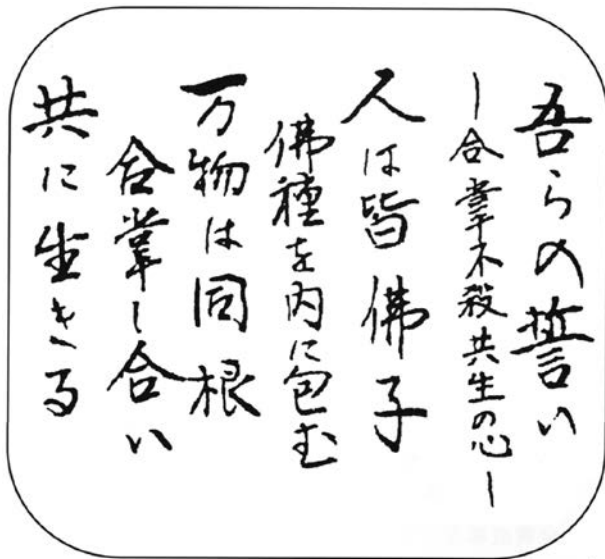 吾らの誓い
ー合掌不殺共生の心ー
人は皆佛子
佛種を内に包む
万物は同根
合掌し合い
共に生きる